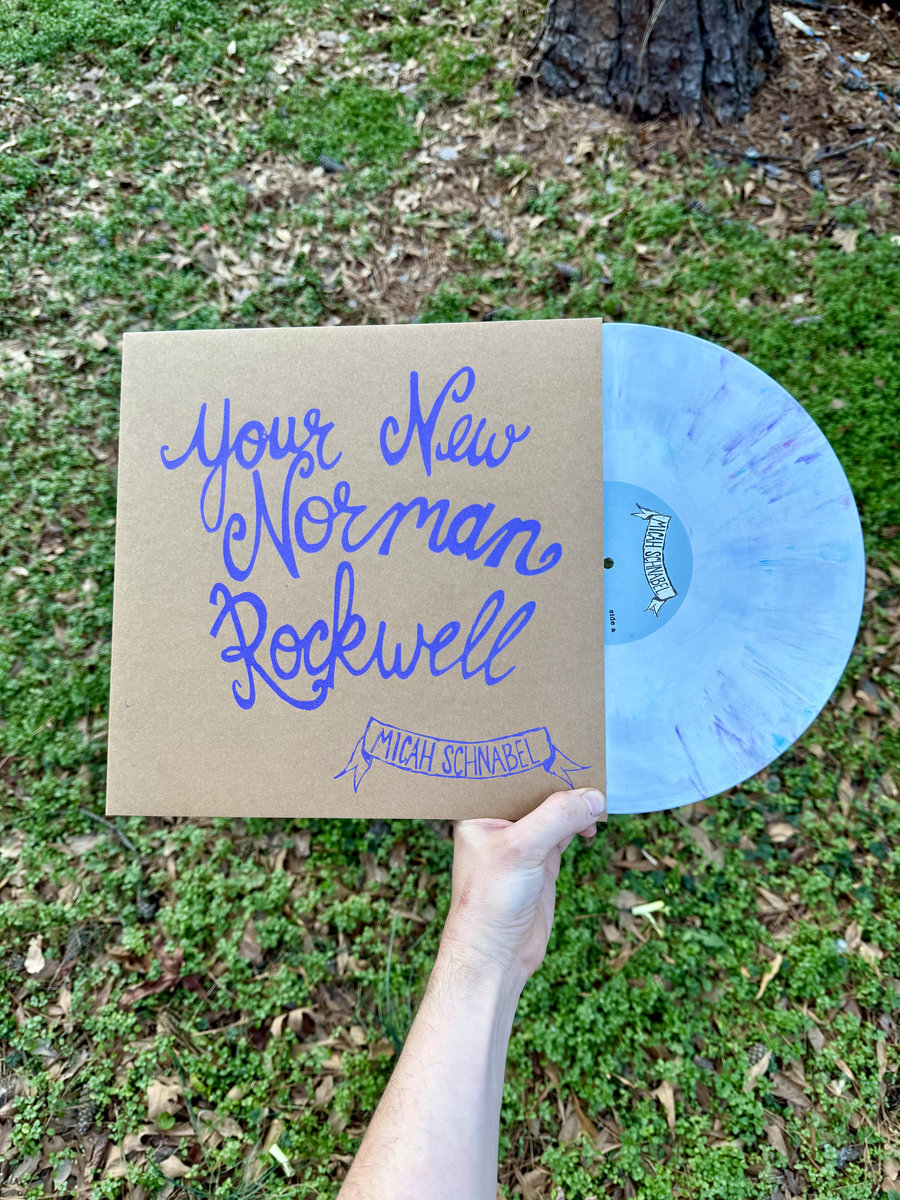 Your New
Norman
Rockwell
MICAH SCHNABEL
MICAH SCHNABEL
side a